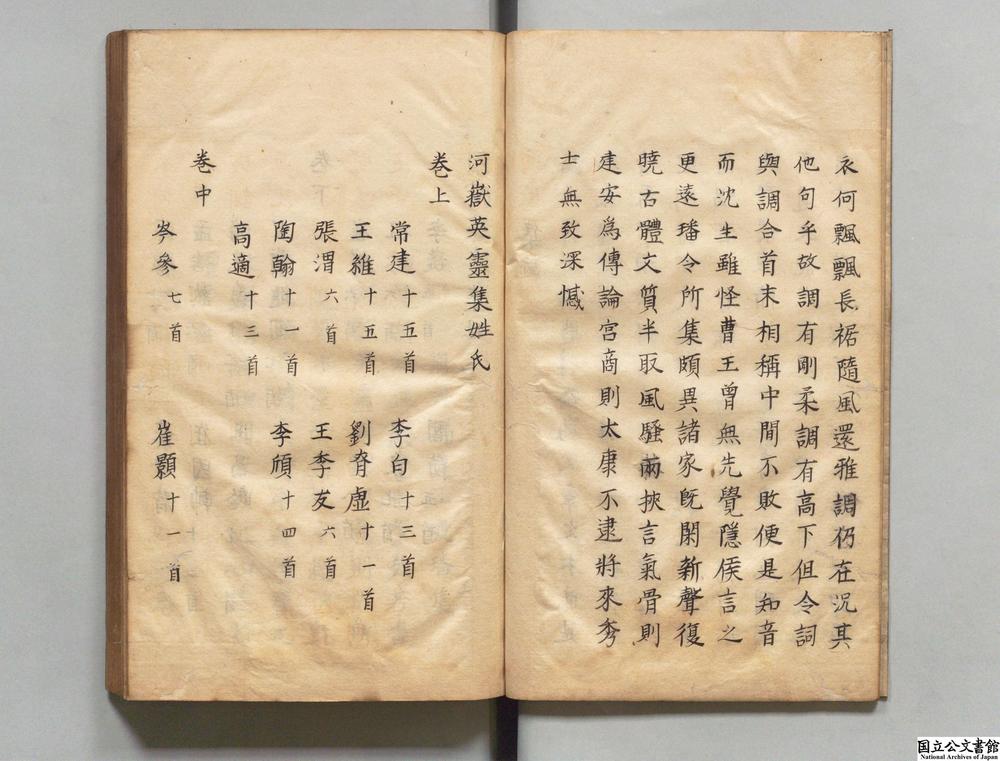 衣何飄飄長裾隨風還雅調仍在況其
他句乎故調有剛柔調有高下但令詞
與調合首末相稱中間不敗便是知音
而沈生雖怪曹王曾無先覺隱侯言之
更遠璠今所集頗異諸家既閑新聲復
曉古體文質半取風騷兩挾言氣骨則
建安爲傳論宮商則太康不逮將來秀
士無致深憾
河嶽英靈集姓氏
卷上
常建十五首 李白十三首
王維十五首 劉脊虛十一首
張渭六首 王季友六首
陶翰十一首 李頎十四首
高適十三首
卷中
岑參七首 崔顥十一首
国立公文書館
National Archives of Japan